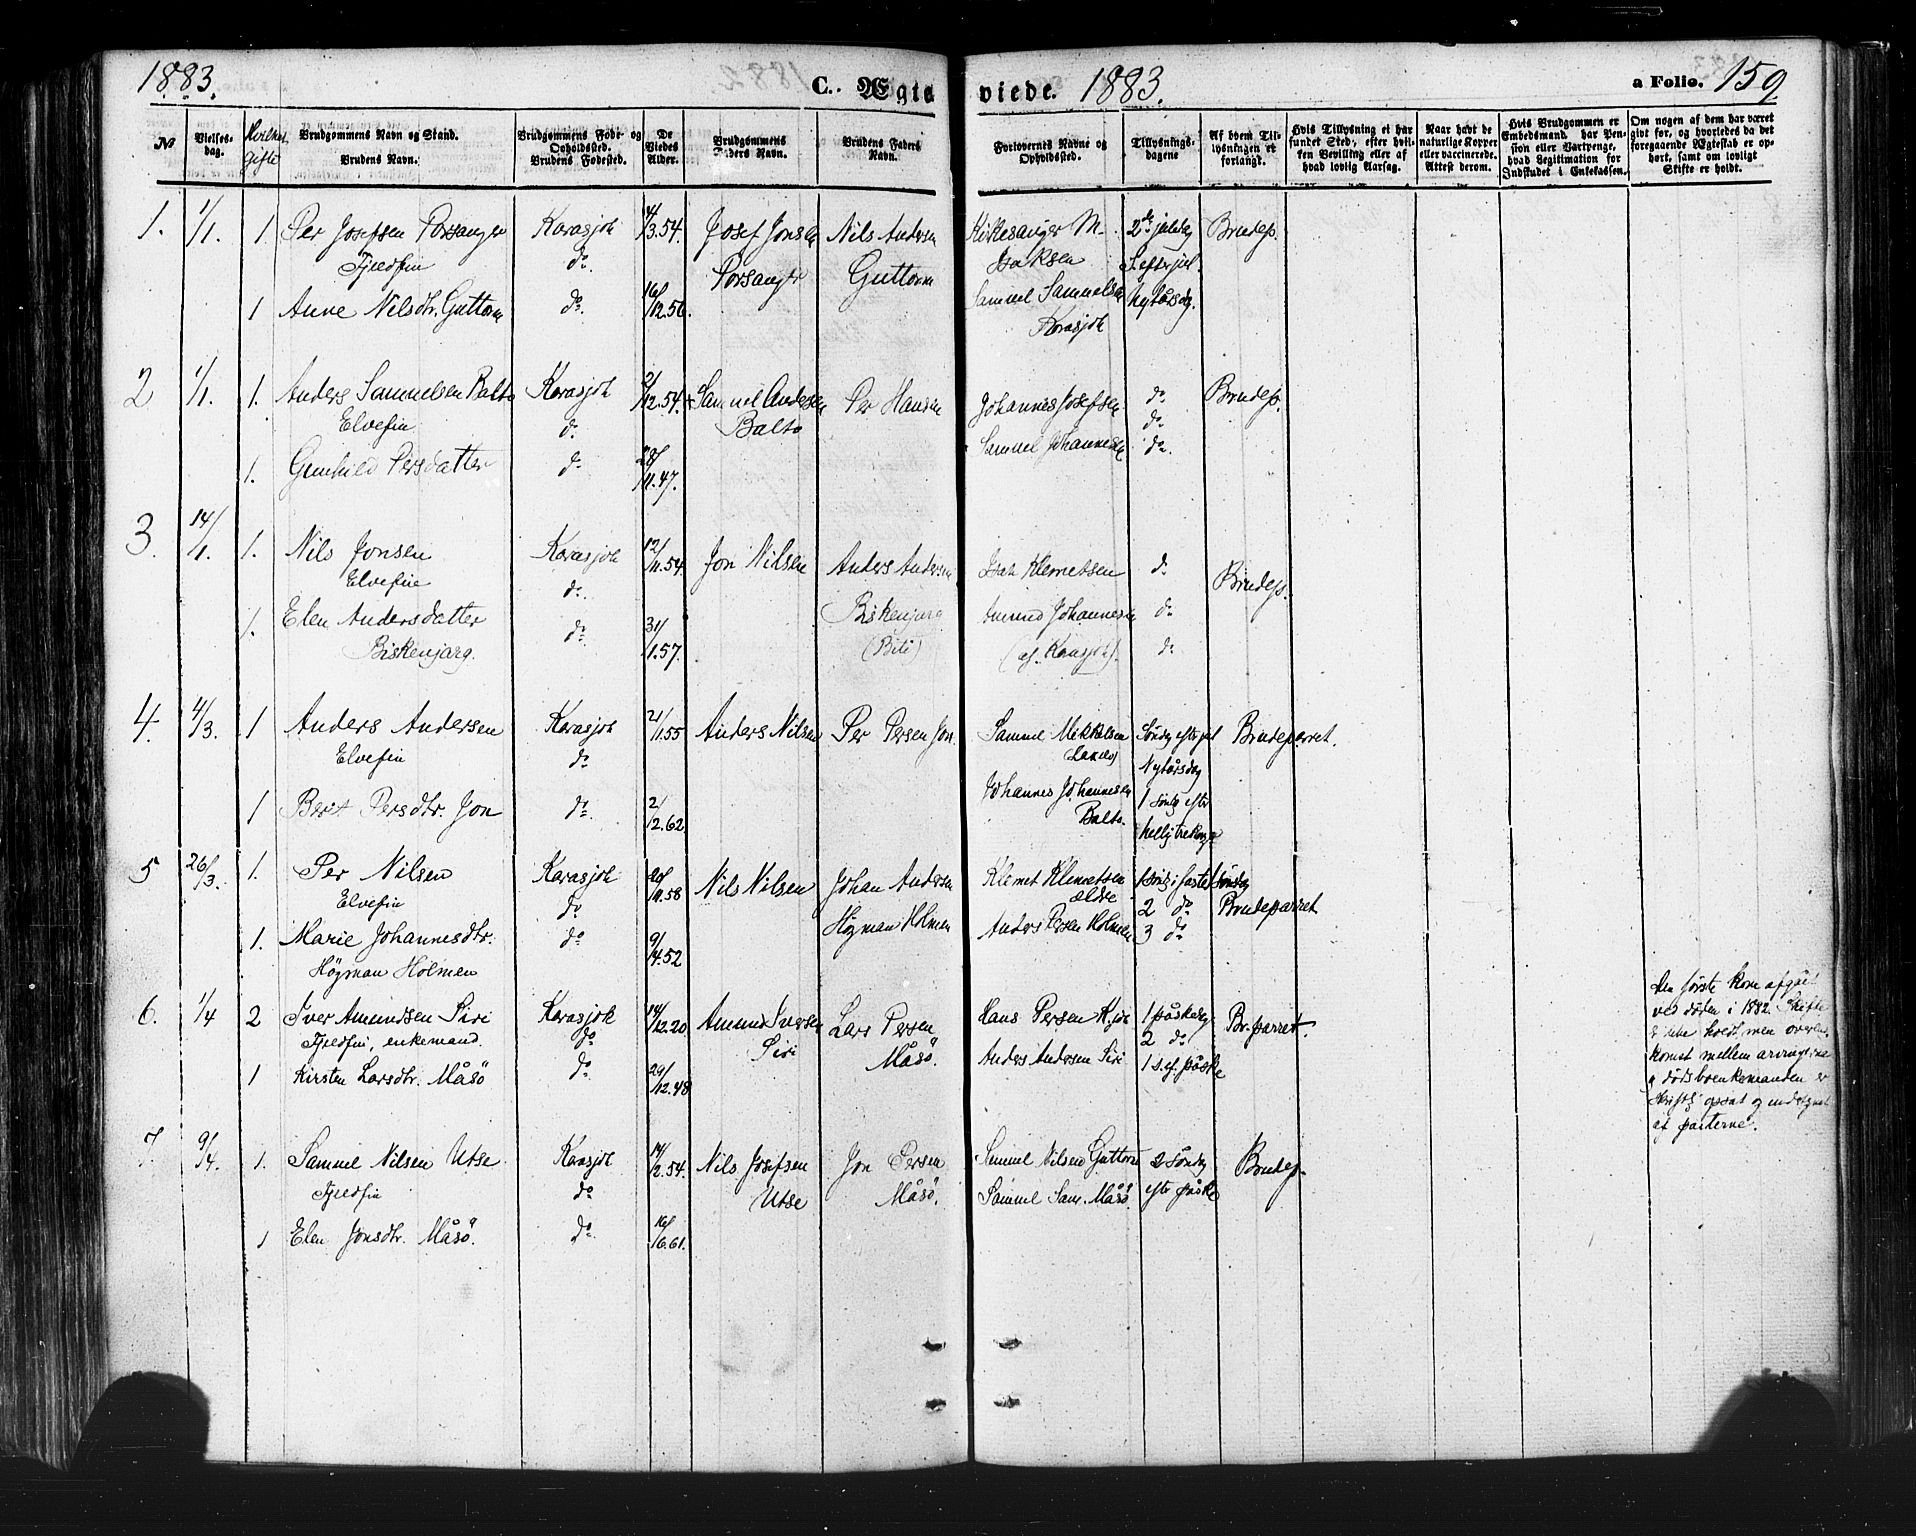 1883.
C. Ægte
viede. 1883.
a Folio. 159
No
Vielses-
dag.
Hvilket
gifte
Brudgommens Navn og Stand.
Brudens Navn.
Brudgommens Føde- og
Opholdssted.
Brudens Fødested.
De
Viedes
Alder.
Brudgommens
Faders Navn.
Brudens Faders
Navn.
Forlovernes Navne og
Opholdssted.
Tillysnings-
dagene
Af hvem Til-
lysningen er
forlangt.
Hvis Tillysning ei har
fundet Sted, efter hvil-
ken Bevilling eller af
hvad lovlig Aarsag.
Naar havt de
naturlige Kopper
eller vaccinerede.
Attest derom.
Hvis Brudgommen er
Embedsmand, har Pen-
sion eller Vartpenge,
hvad Legitimation for
Indskudet i Enkekassen.
Om nogen af dem har været
gift før, og hvorledes da det
foregaaende Ægteskab er op-
hørt, samt om lovligt
Skifte er holdt.
1. 1/1. 1. Per Josefsen Porsanger Karasjok 4/3.54. Josef Jonsen Nils Andersen Kirkesanger M. 2den juledag Brudep.
Fjeldfin do. Porsanger Guttorm Isaksen S. efter jul.
1 Anne Nilsdtr. Guttorm do. 16/12.56. Samuel Samuelsen Nytårsdg.
Karasjok
2 1/1. 1. Anders Samuelsen Balto Karasjok 2/12.54. Samuel Andersen Per Hansen Johannes Josefsen do. Brudep.
Elvefin do. Balto do.
1. Gunhild Persdatter do 28/11.47. Samuel Johannesen do.
3. 14/1. 1. Nils Jonsen Karasjok 12/11.54. Jon Nilsen Anders Andersen Isak Klemetsen do. Brudep.
Elvefin do.
1. Elen Andersdatter do. 31/1.57. Biskenjarg Amund Johannesen do
Biskenjarg. (Biti) (af Karasjok). do
4. 4/3. 1 Anders Andersen Karasjok 21/1.55 Anders Nilsen Per Persen Jon. Samuel Mikkelsen Søndg efter jul Brudeparret.
Elvefin do Nytårsdag
1 Berit Persdtr. Jon do. 2/2.62. Johannes Johannesen 1 søndg efter
Balto. hellig trekonger
5 26/3. 1. Per Nilsen Karasjok 20/11.58 Nils Nilsen Johan Andersen Klemet Klemetsen 1 søndg i fasten
Elvefin do ældre 2 do Brudeparret
1. Marie Johannesdtr. do 9/4.52 Högman Holmen Anders Persen Holmen 3 do
Högman Holmen
6. 1/4 2 Iver Amundsen Siri Karasjok 14/12.20 Amund Iversen Lars Persen Hans Persen 1 påskedg Br.parret.
Fjeldfin, enkemand. do Siri Måsö. 2 do
1 Kirsten Larsdtr. Måsö do. 29/12.48 Anders Andersen Siri 1 s. ef. påske
Den første kone afgået
ved døden i 1882. Skifte
er ikke holdt, men overen-
komst mellem arvingerne
og dødsboenkemanden er
skriftlg opsat og undertegnet
af parterne.
7. 9/4. 1. Samuel Nilsen Utse Karasjok 14/2.54. Nils Josefsen Jon Persen Samuel Nilsen Guttorm 2 Søndag Brudep.
Fjeldfin do Utse Måsö. Samuel Sam. Måsö. efter påske
1 Elen Jonsdtr. Måsö. do. 16/6.61.